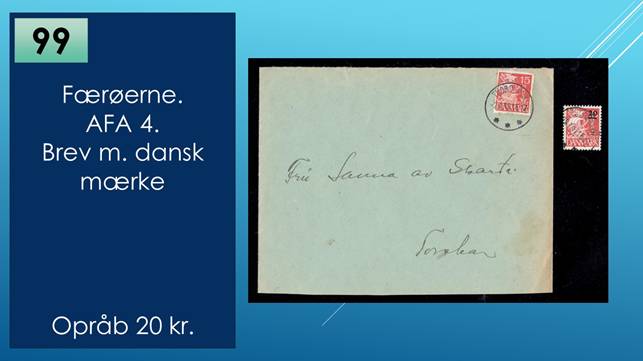 99
Færøerne.
AFA 4.
Brev m. dansk
mærke
Opråb 20 kr.
15
DANMARK
20
DANMARK
Frú Sanna av Skarði